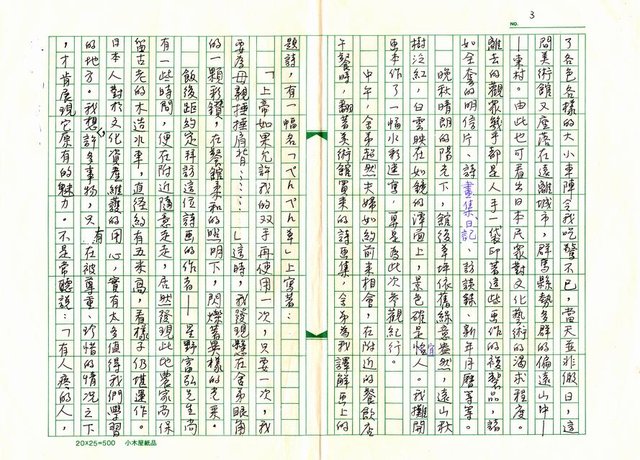 NO. 3
了各色各樣的大小車陣令我吃驚不已,當天並非假日,這
間美術館又座落在遠離城市,群馬縣勢多群的偏遠山中—
—東村。由此也可看出日本民眾對文化藝術的渴求程度。
離去的觀眾幾乎都是人手一袋印著這些畫作的複製品,諸
如全套的明信片、詩畫集、日記、訪談錄、新年月曆等等。
晚秋晴朗的陽光下,館後草坪依舊綠意盎然,遠山秋
樹泛紅,白雲映在如鏡的潭面上,景色確是怡人。我攤開
畫本作了一幅水彩速寫,算是為此次參觀紀行。
中午,舍弟超然夫婦如約前來相會,在附近的餐飲店
午餐時,翻著美術館買來的詩畫集,舍弟為我譯解畫上的
題詩,有一幅名「ぺんぺん草」上寫著:
「上帝如果允許我的双手再使用一次,只要一次,我
要為母親捶捶肩背……」這時,我發現懸在舍弟眼角
的一顆彩鑽,在餐館柔和的照明下,閃爍著異樣的光采。
飯後距約定拜訪這位詩畫的作者——星野富弘先生尚
有一些時間,便在附近隨意走走,居然發現此地農家尚保
留古老的木造水車,直徑約有五米寬,看樣子仍堪運作。
日本人對於文化資產維護的用心,實有太多值得我們學習
的地方。我想,許多事物,只有在被尊重、珍惜的情況之下
,才肯展現它原有的魅力。不是常聽說:「有人疼的人,
20×25=500 小木屋紙品